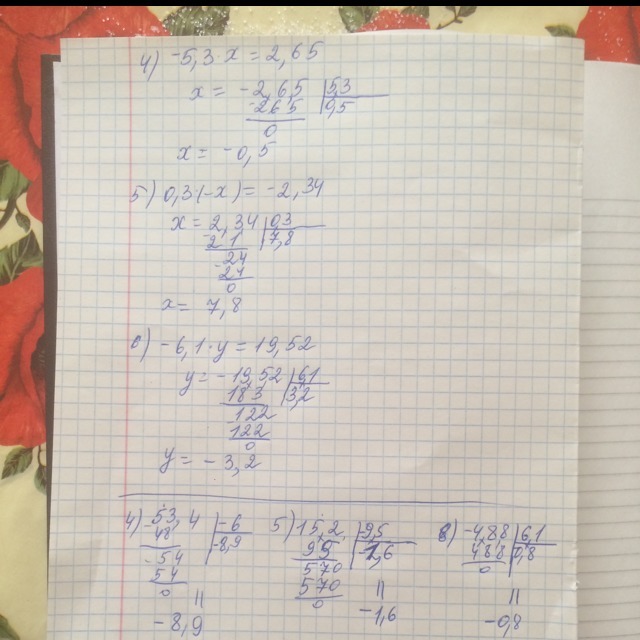 4) -5,3·x = 2,65
x = -2,65 | 5,3
-265 | 0,5
0
x = -0,5
5) 0,3·(-x) = -2,34
x = 2,34 | 0,3
-21 | 7,8
24
-24
0
x = 7,8
6) -6,1·y = 19,52
y = -19,52 | 6,1
183 | 3,2
122
122
0
y = -3,2
4) 53,4 | -6 5) 15,2 | 9,5 8) -4,88 | 6,1
48 | -8,9 95 | -1,6 488 | 0,8
-54 570 0
54 570 ||
0 0 || -0,8
|| -1,6
-8,9